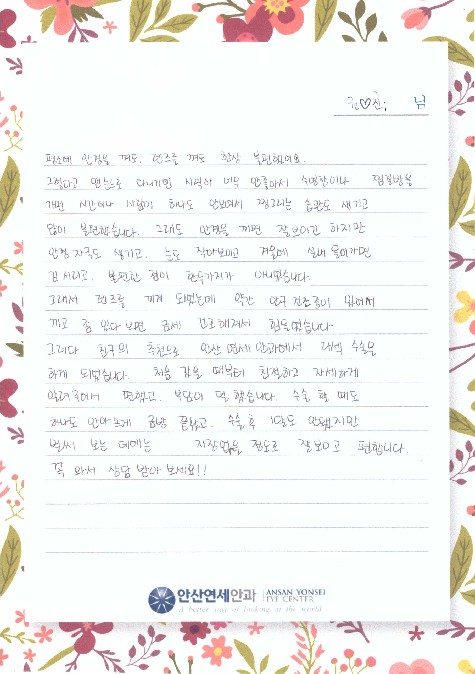 권♡진 님
평소에 안경을 껴도, 렌즈를 껴도 항상 불편했어요.
그렇다고 맨눈으로 다니기엔 시력이 너무 안좋아서 수영장이나 찜질방을
가면 시간이나 사람이 하나도 안보여서 찡그리는 습관도 생기고
많이 불편했습니다. 그래도 안경을 끼면 잘보이긴 하지만
안경 자국도 생기고, 눈도 작아보이고 겨울에 실내 들어가면
김 서리고, 불편한 점이 한두가지가 아니었습니다.
그래서 렌즈를 끼게 되었는데 약간 안구 건조증이 있어서
끼고 좀 있다 보면 금세 건조해져서 힘들었습니다
그러다 친구의 추천으로 안산 연세 안과에서 라섹 수술을
하게 되었습니다. 처음 갔을 때부터 친절하고 자세하게
알려주셔서 편했고, 부담이 덜 했습니다. 수술 할 때도
하나도 안아프게 금방 끝났고, 수술 후 1달도 안됐지만
벌써 보는 데에는 지장없을 정도로 잘보이고 편합니다.
꼭 와서 상담 받아 보세요!!
안산연세안과 ANSAN YONSEI
EYE CENTER
A better way of looking at the world